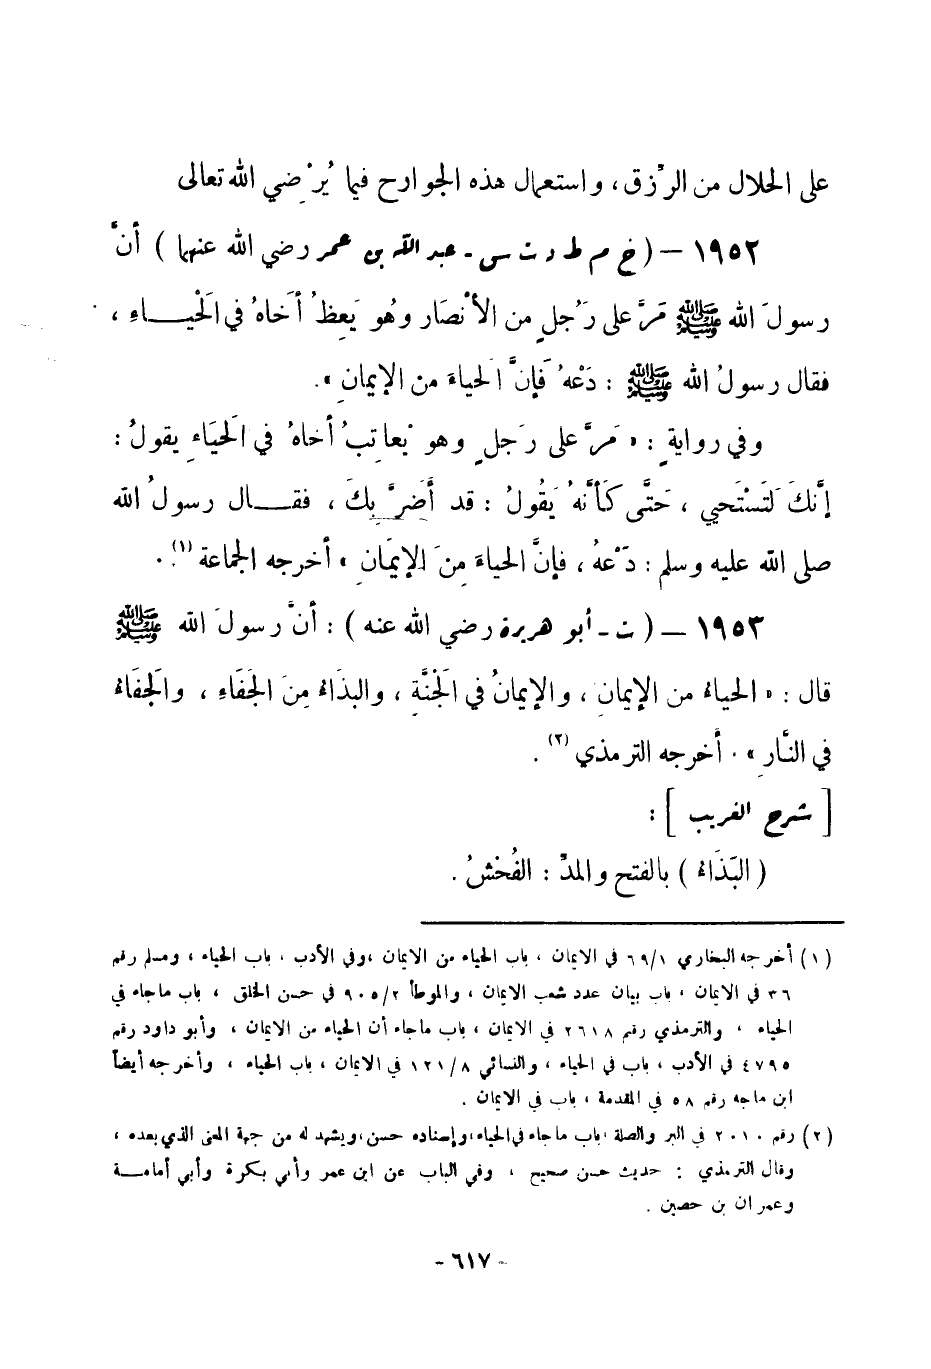 على الحلال من الرِّزق ، واستعمال هذه الجوارح فيما يُرْضي الله تعالى
١٩٥٢ – ( خ م ط د ت س - عبد الله بن عمر رضي الله عنهما ) أنَّ
رسولَ الله ﷺ مَرَّ على رَجُلٍ من الأنْصَار وهُو يَعِظُ أَخَاهُ في الْحَيــاءِ ،
فقال رسولُ الله ﷺ : دَعْهُ فَإنَّ الحياءَ من الإيمانِ » .
وفي روايةٍ : « مَرَّ على رَجلٍ وهو يُعاتِبُ أخاهُ في الحَيَاءِ يقولُ :
إنَّكَ لَتَسْتَحيِي ، حَتَّى كَأنَّهُ يَقُولُ : قد أَضَرَّ بِكَ ، فقــال رسولُ الله
صلى الله عليه وسلم : دَعْهُ ، فإنَّ الحياءَ مِنَ الإيمَانِ » أخرجه الجماعة (١) .
١٩٥٣ – ( ت - أبو هريرة رضي الله عنه ) : أنَّ رسولَ الله ﷺ
قال : « الحياءُ من الإيمانِ ، والإيمانُ في الْجَنَّةِ ، والبذَاءُ مِنَ الجَفَاءِ ، والجفَاءُ
في النَّارِ » . أخرجه الترمذي (٢) .
[ شرح الغريب ] :
( البَذَاءُ ) بالفتح والمدِّ : الفُحْشُ .
(١) أخرجه البخاري ٦٩/١ في الايمان ، باب الحياء من الايمان ، وفي الأدب ، باب الحياء ، ومسلم رقم
٣٦ في الايمان ، باب بيان عدد شعب الايمان ، والموطأ ٩٠٥/٢ في حسن الخلق ، باب ماجاء في
الحياء ، والترمذي رقم ٢٦١٨ في الايمان ، باب ماجاء أن الحياء من الايمان ، وأبو داود رقم
٤٧٩٥ في الأدب ، باب في الحياء ، والنسائي ١٢١/٨ في الايمان ، باب الحياء ، وأخرجه أيضاً
ابن ماجه رقم ٥٨ في المقدمة ، باب في الايمان .
(٢) رقم ٢٠١٠ في البر والصلة ، باب ماجاء في الحياء ، وإسناده حسن ، ويشهد له من جهة المعنى الذي بعده ،
وقال الترمذي : حديث حسن صحيح ، وفي الباب عن ابن عمر وأبي بكرة وأبي أمامــة
وعمران بن حصين .
- ٦١٧ -